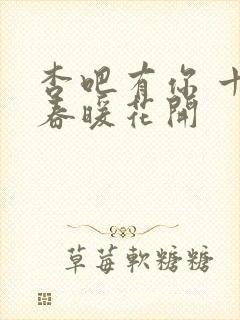 杏吧有你 十
春暖花開
草莓軟糖糖